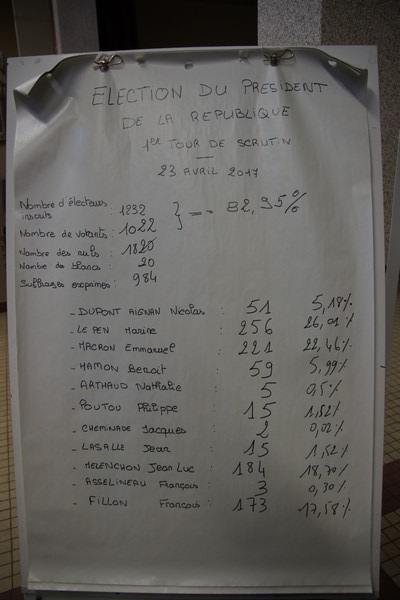 ELECTION DU PRESIDENT
DE LA REPUBLIQUE
1er TOUR DE SCRUTIN
23 AVRIL 2017
Nombre d'électeurs inscrits : 1232 } = 82,95%
Nombre de votants : 1022
Nombre des nuls : 18
Nombre de blancs : 20
Suffrages exprimés : 984
- DUPONT AIGNAN Nicolas : 51 5,18%
- LE PEN Marine : 256 26,01%
- MACRON Emmanuel : 221 22,46%
- HAMON Benoit : 59 5,99%
- ARTHAUD Nathalie : 5 0,5%
- POUTOU Philippe : 15 1,52%
- CHEMINADE Jacques : 2 0,02%
- LASALLE Jean : 15 1,52%
- MELENCHON Jean Luc : 184 18,70%
- ASSELINEAU François : 3 0,30%
- FILLON François : 173 17,58%